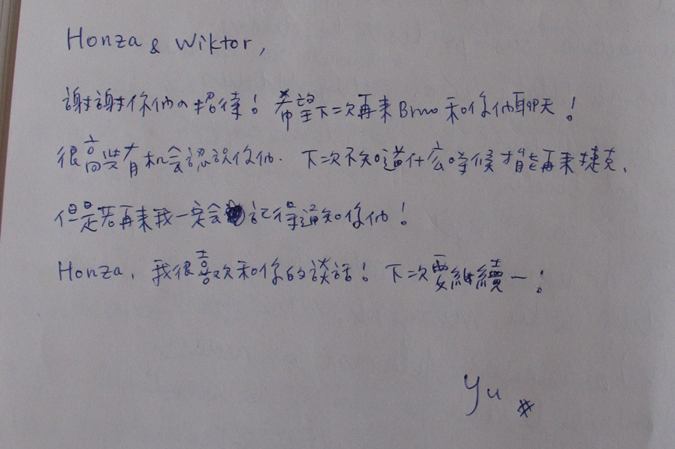 Honza & Wiktor,
謝謝你们の招待！希望下次再來Brno和你们聊天！
很高興有机会認識你们. 下次不知道什么時候才能再來捷克,
但是若再來我一定会記得通知你们！
Honza, 我很喜欢和你的談話！下次要継續—！
Yu